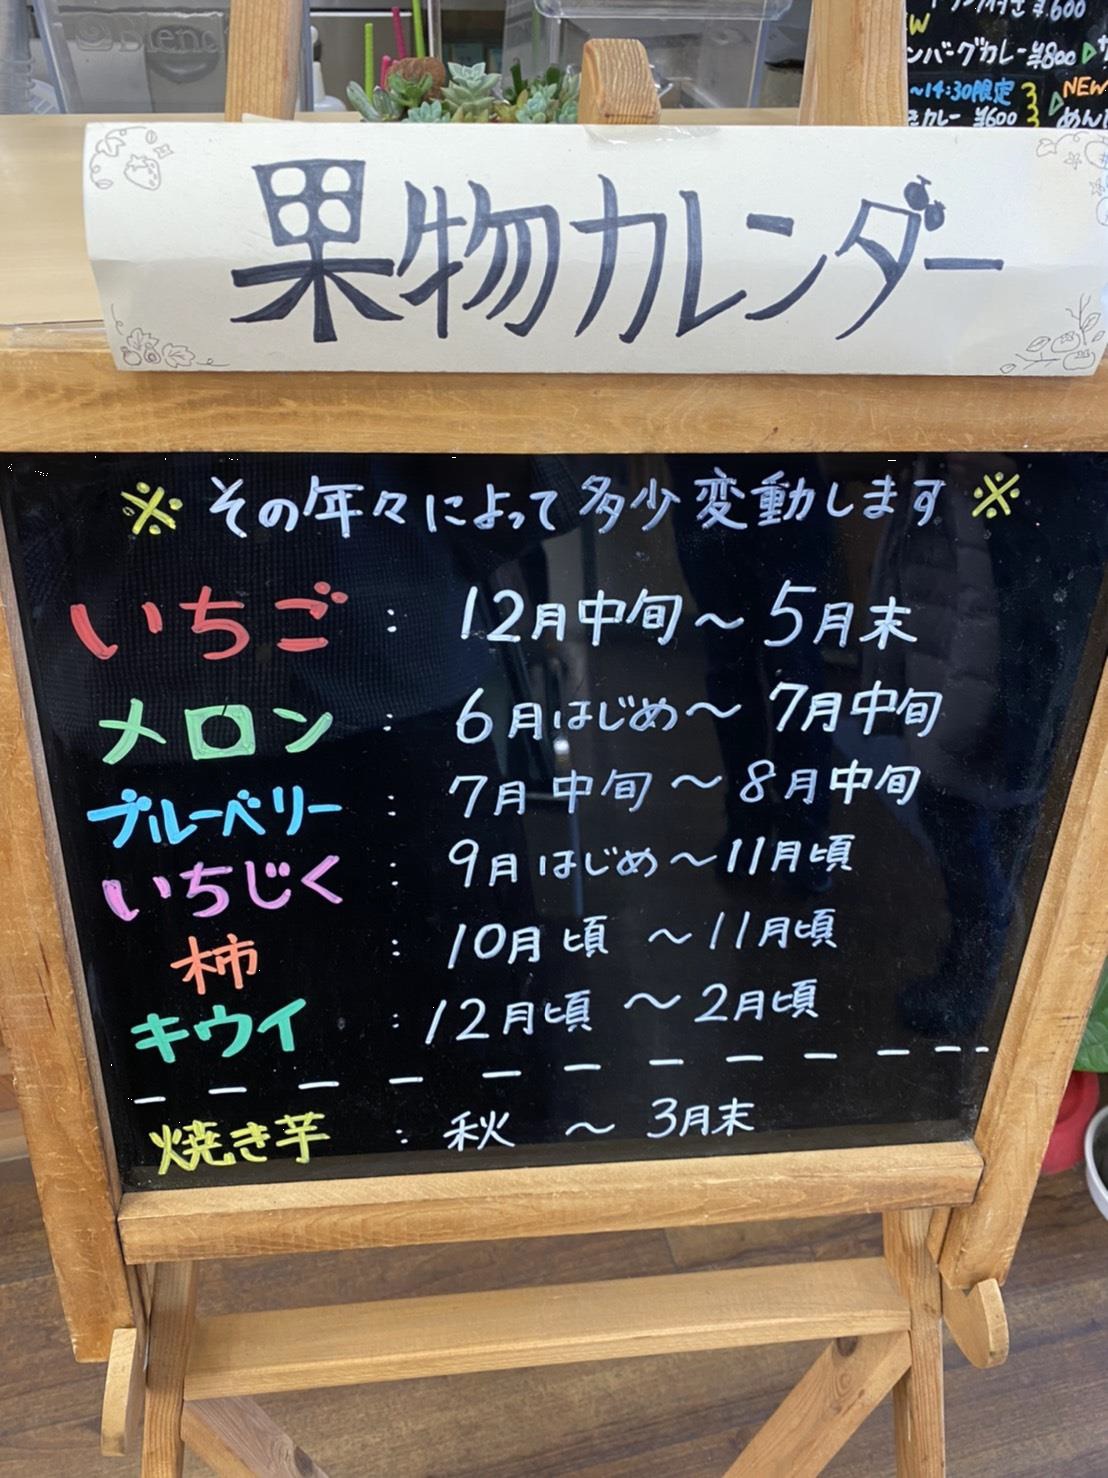 Blend
付き ¥600
ンバーグカレー ¥800
~14:30限定
NEW
カレー ¥600
果物カレンダー
※ その年々によって多少変動します ※
いちご : 12月中旬 ~ 5月末
メロン : 6月はじめ~ 7月中旬
ブルーベリー : 7月中旬 ~ 8月中旬
いちじく : 9月はじめ~11月頃
柿 : 10月頃 ~ 11月頃
キウイ : 12月頃 ~ 2月頃
焼き芋 : 秋 ~ 3月末